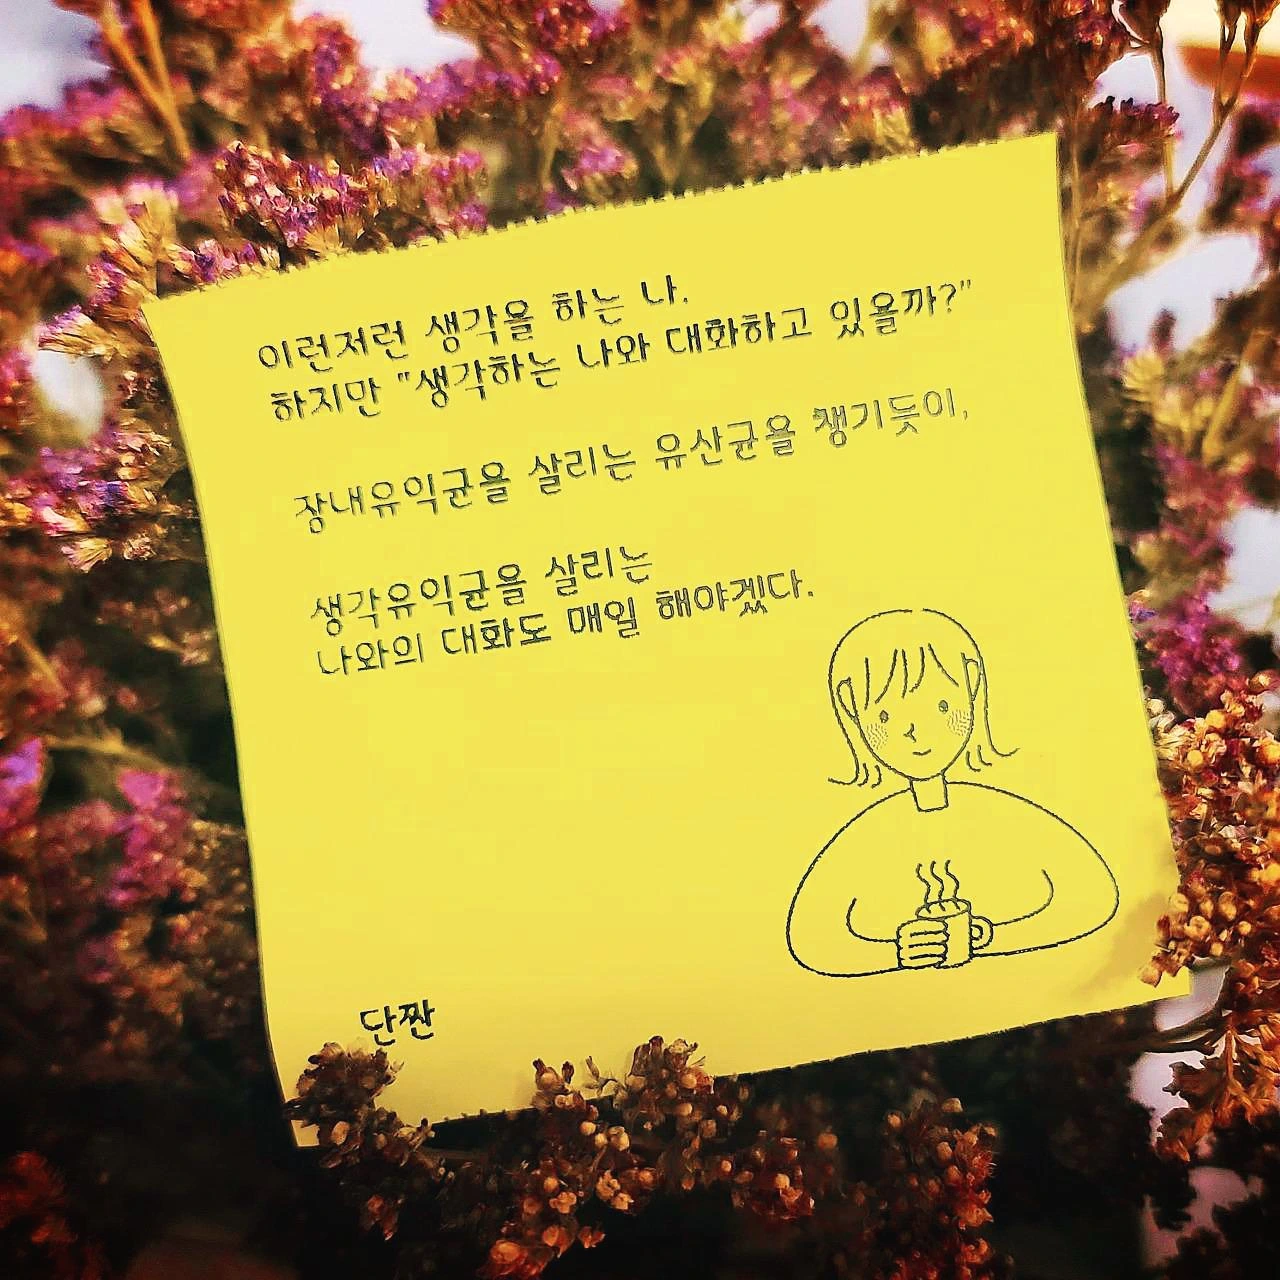 이런저런 생각을 하는 나.
하지만 "생각하는 나와 대화하고 있을까?"
장내유익균을 살리는 유산균을 챙기듯이,
생각유익균을 살리는
나와의 대화도 매일 해야겠다.
단짠